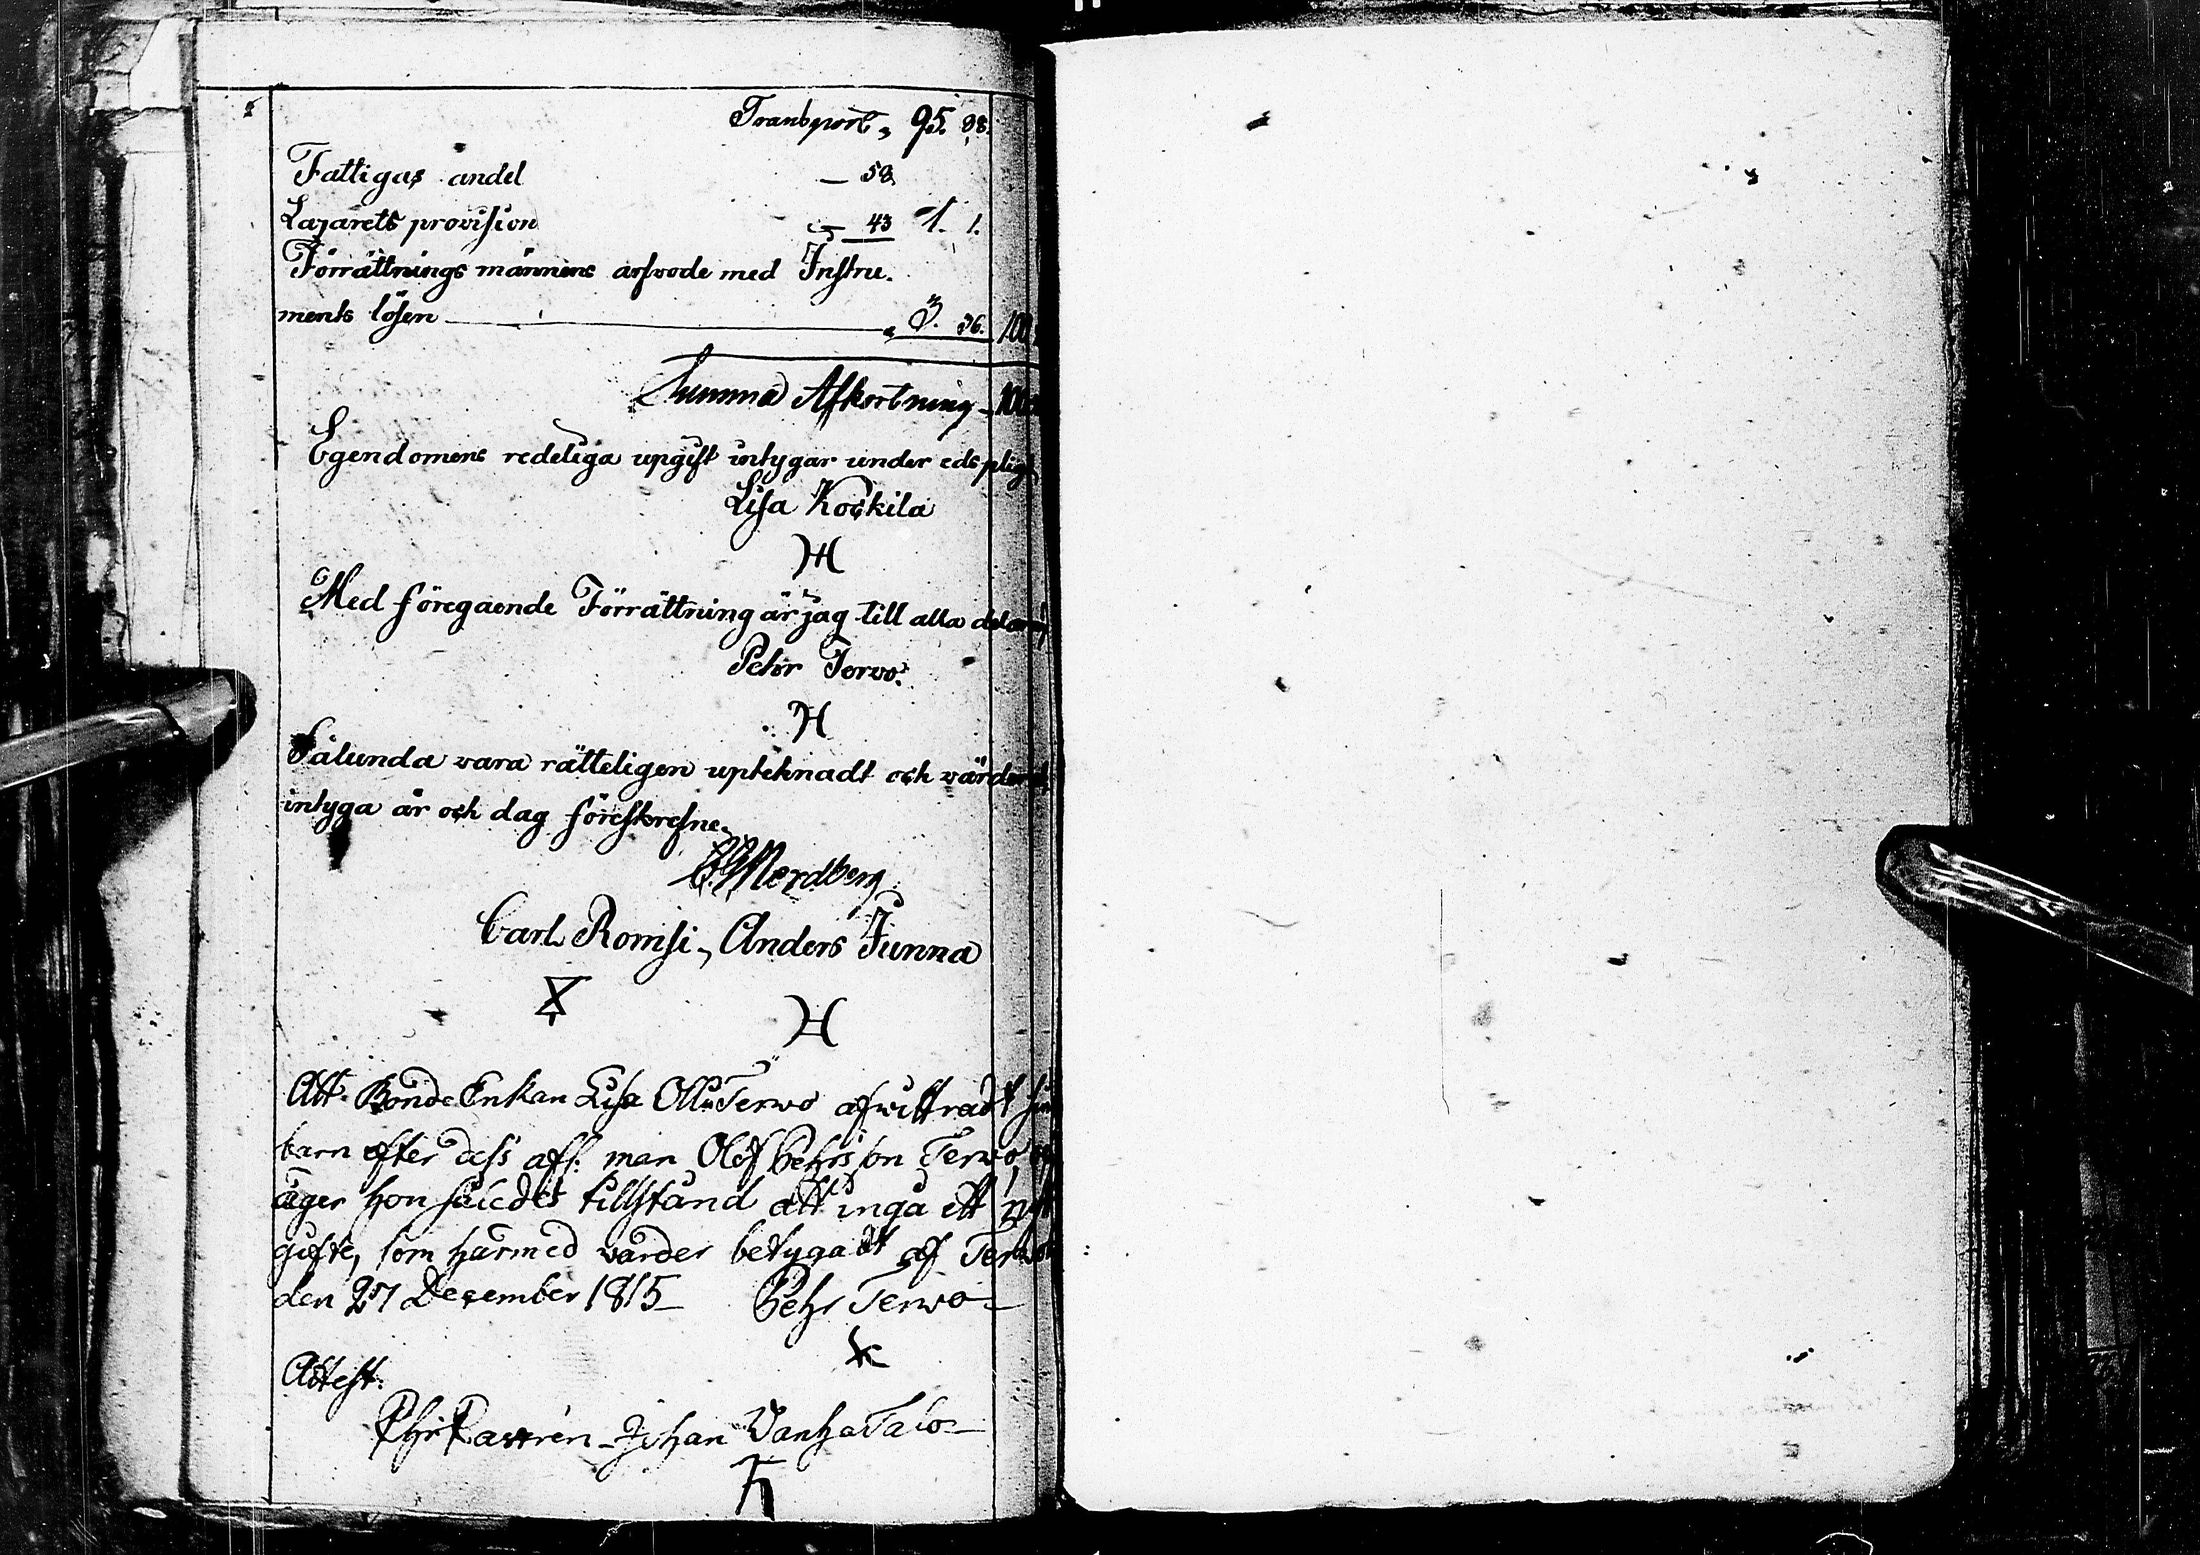 Transport, 95. 98.
Fattigas andel — 58.
Lazarets provision — 43 1. 1.
Förrättnings männens arfvode med Instru-
ments lösen 3. 36. 100
Summa Afkortning 100
Egendomens redeliga upgift intygar under eds pligt
Lisa Kockila
Med föregaende Förrättning är jag till alla delar
Pehr Tervo.
Sålunda vara rätteligen upteknadt och värderadt
intyga år och dag föreskrefne.
Nordberg
Carl Romsi, Anders Junna
Att Bonde Enkan Lisa Olli Terwo afwittradt sin
barn efter dess afl: man Olof Pehrsson Terwo,
äger hon således tillstånd att ingå ett nytt
gifte, som härmed varder betygadt af Terwo
den 27 December 1815 Pehr Terwo
Attest:
Johan VanhaTalo